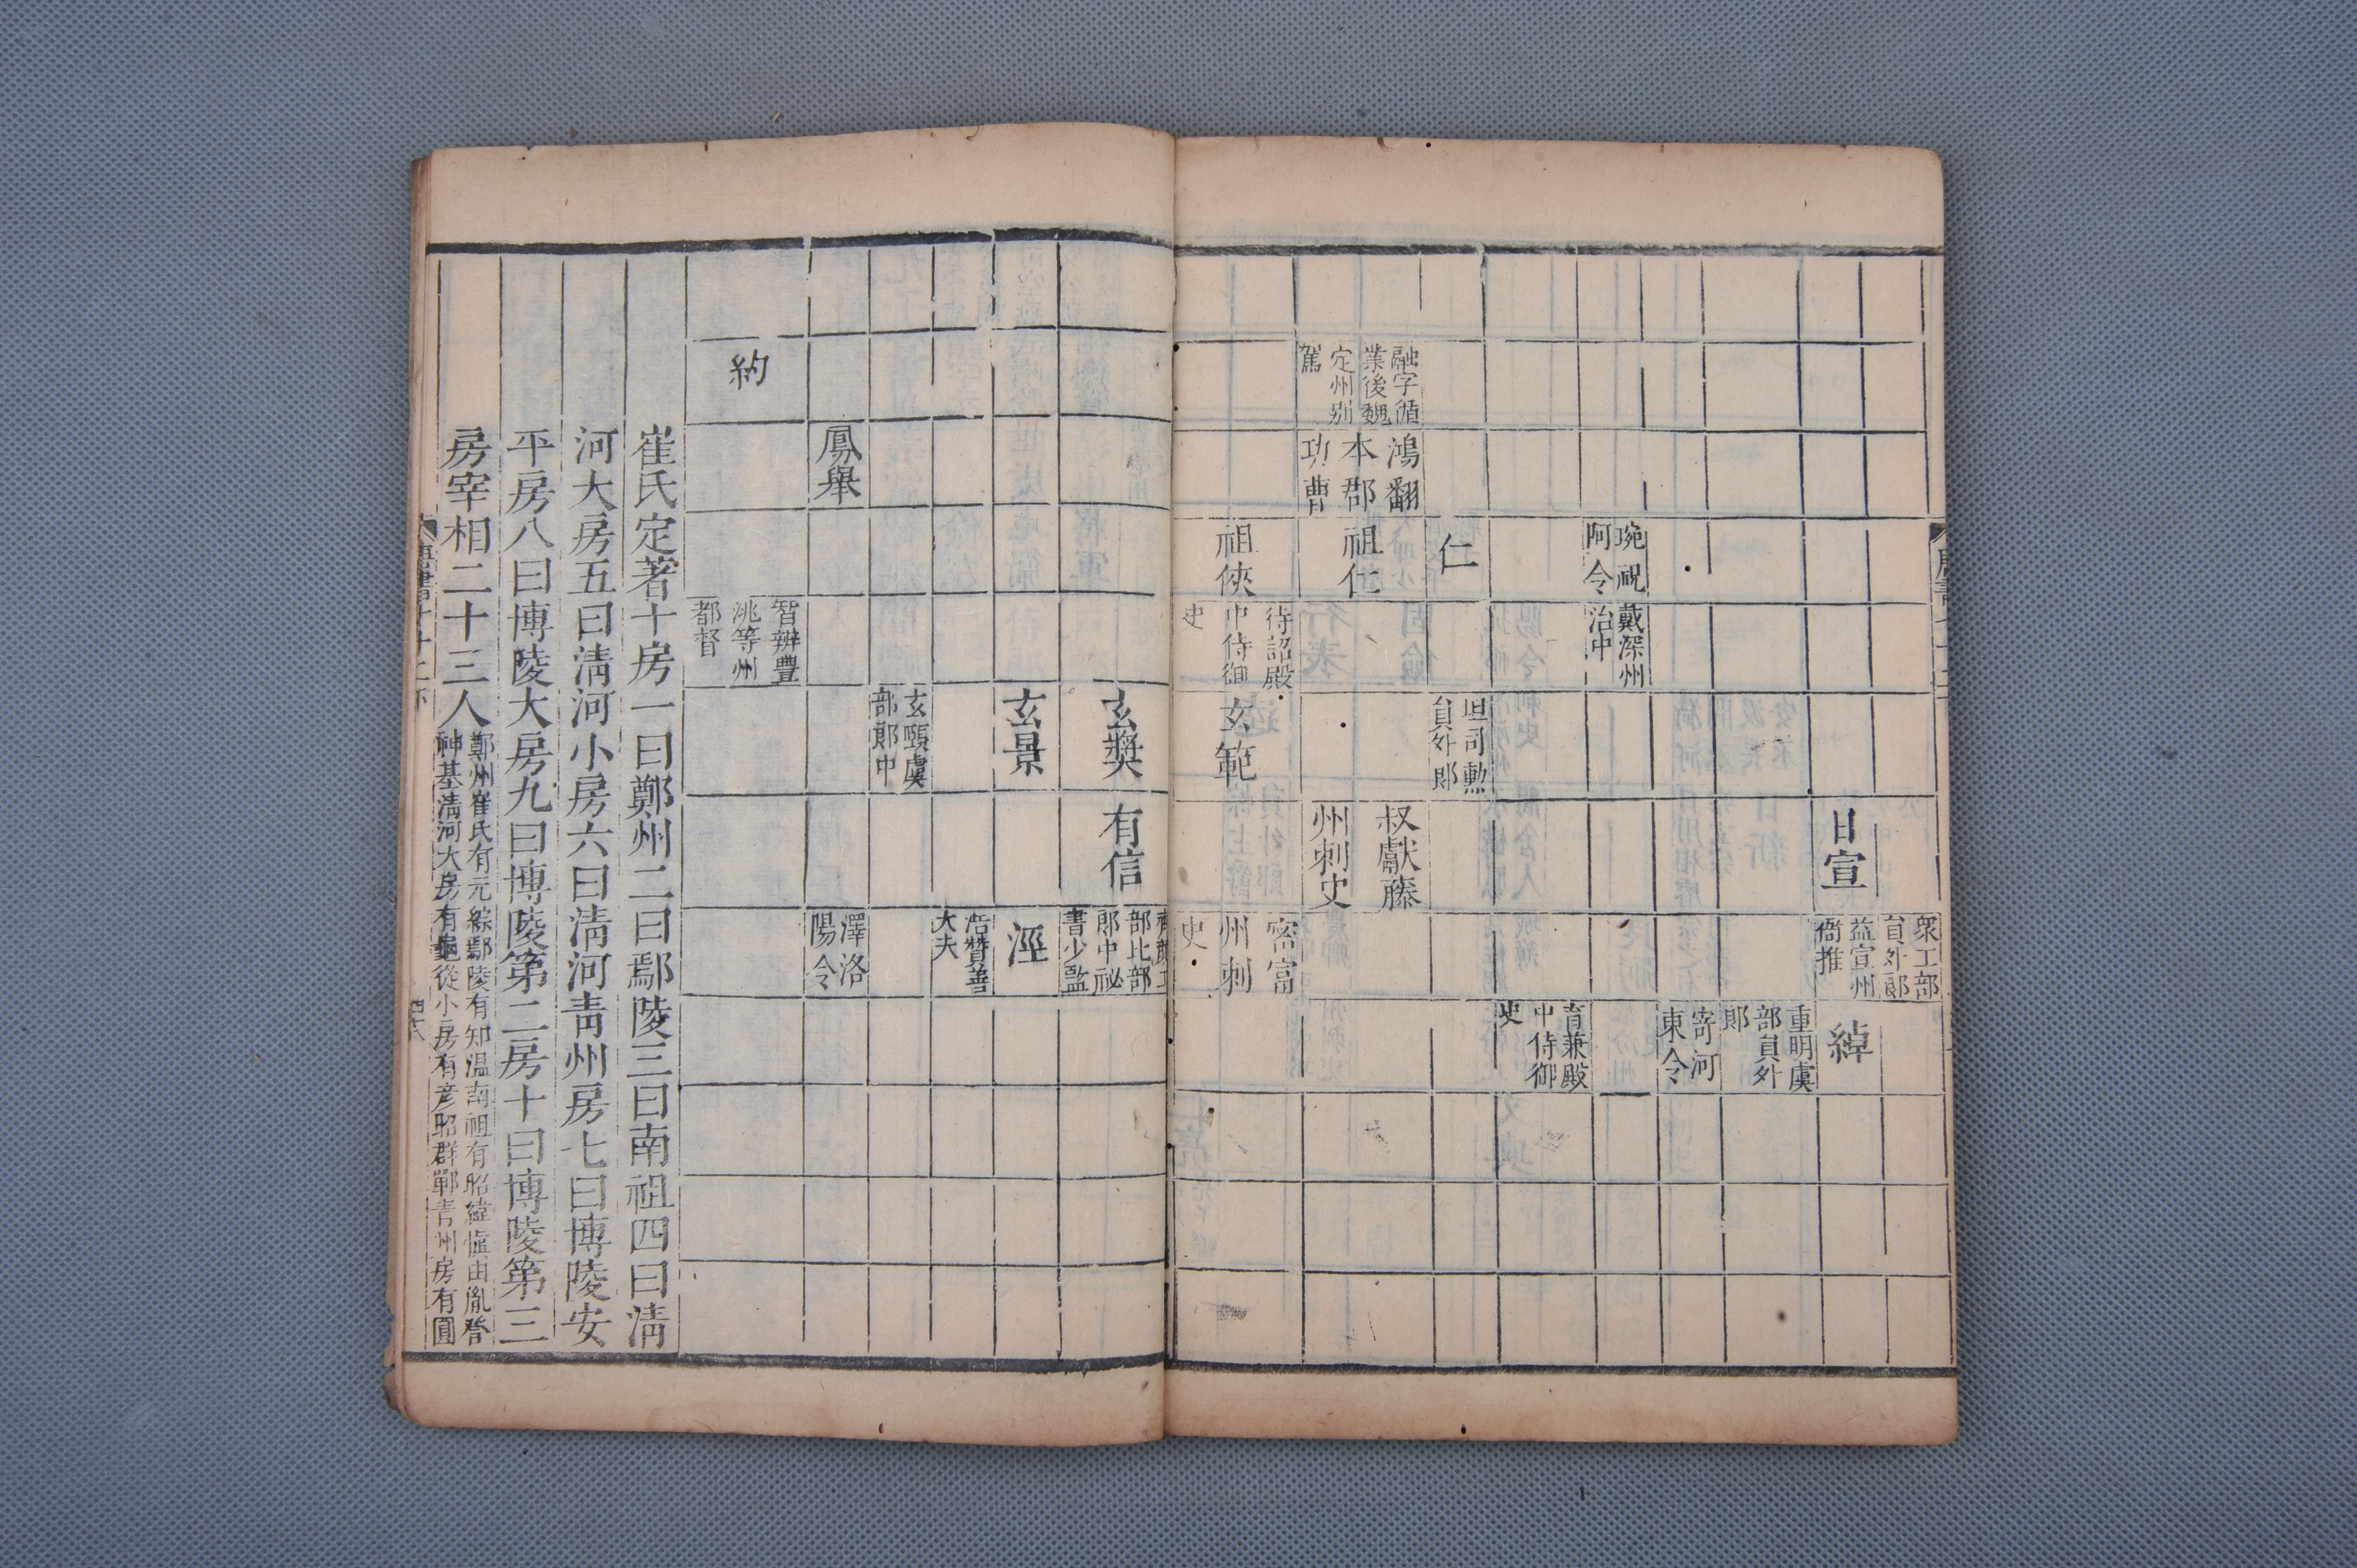 衆工部
員外郎
益宣州
衙推
日宣
綽
重明虞
部員外
郎
寄河
東令
琬祝
阿令
戴深州
治中
育兼殿
中侍御
史
仁
坦司勲
員外郎
融字循
業後魏
定州别
駕
鴻翻
本郡
功曹
祖仁
叔獻藤
州刺史
祖俠
待詔殿
中侍御
史
玄範
密富
州刺
史
玄奬
有信
部比部
郎中祕
書少監
玄景
涇
浩贊善
大夫
玄頤虞
部郎中
鳳舉
澤洛
陽令
約
智辨豊
洮等州
都督
崔氏定著十房一曰鄭州二曰鄢陵三曰南祖四曰清
河大房五曰清河小房六曰清河青州房七曰博陵安
平房八曰博陵大房九曰博陵第二房十曰博陵第三
房宰相二十三人
鄭州崔氏有元綜鄢陵有知温南祖有昭緯慎由胤
神基清河大房有龜從小房有彦昭群鄲青州房有圓